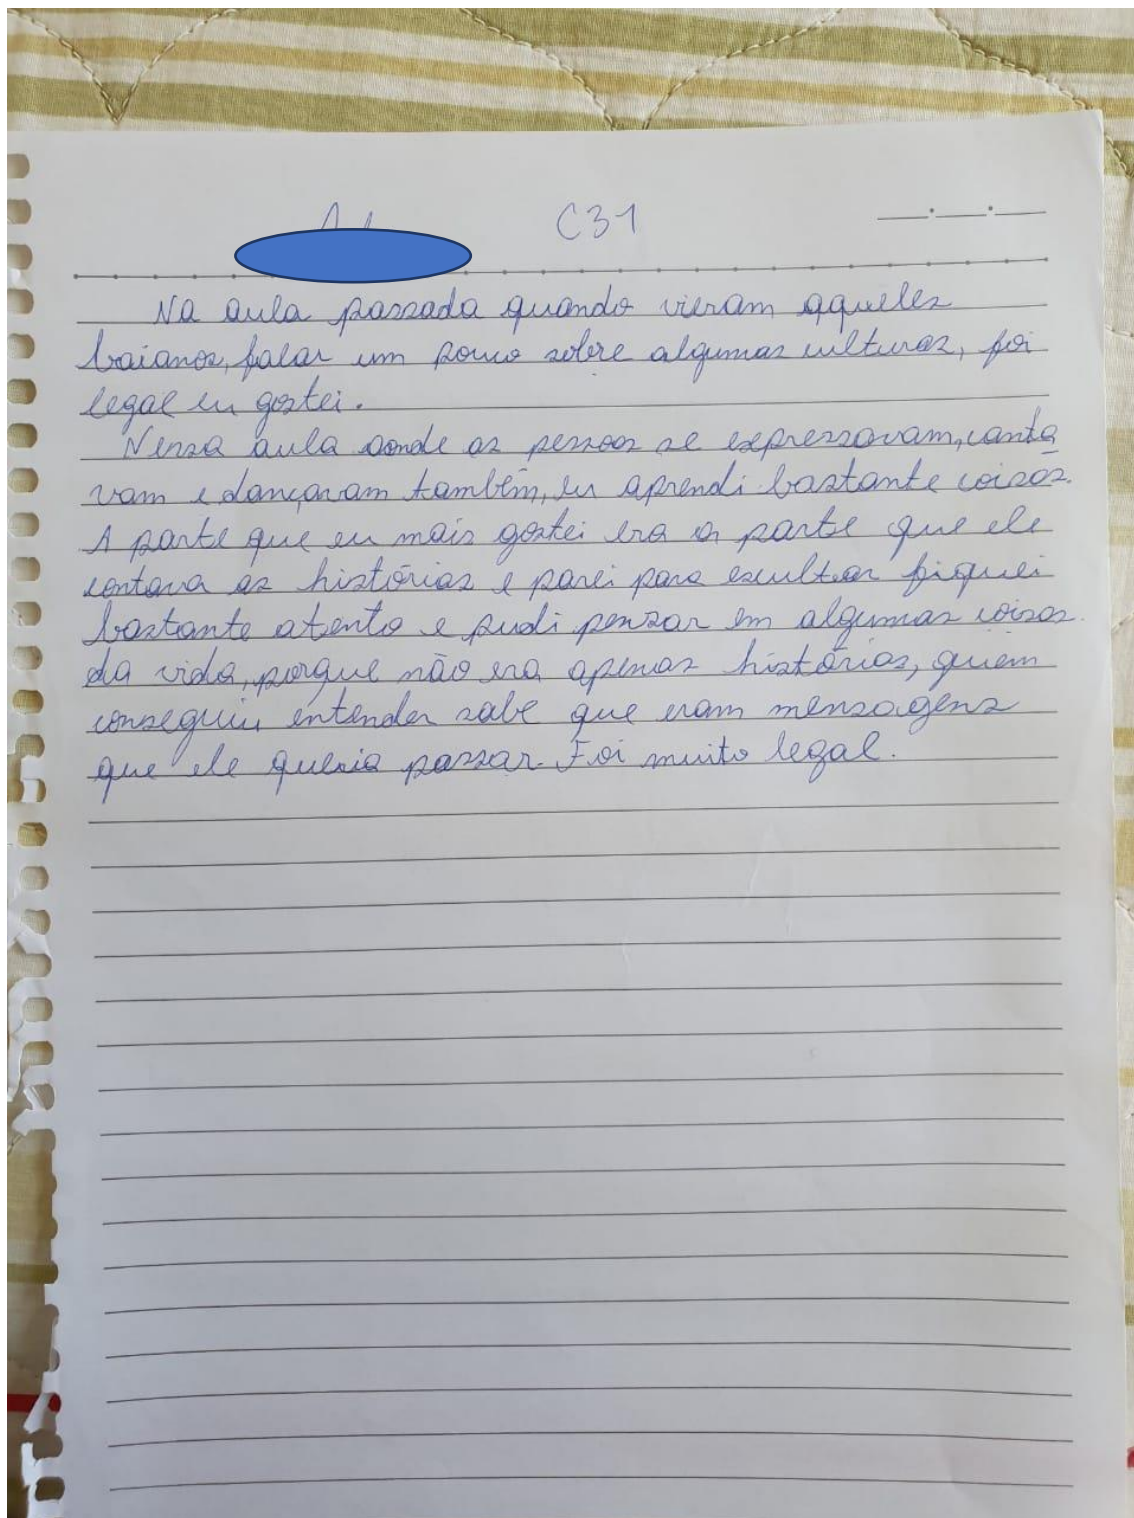 C31
Na aula passada quando vieram aqueles
baianos, falar um pouco sobre algumas culturas, foi
legal eu gostei.
Nessa aula aonde as pessoas se expressavam, canta
vam e dançavam também, eu aprendi bastante coisas.
A parte que eu mais gostei era a parte que ele
contava as histórias e parei para escultar fiquei
bastante atento e pudi pensar em algumas coisas
da vida, porque não era apenas histórias, quem
conseguiu entender sabe que eram mensagens
que ele queria passar. Foi muito legal.